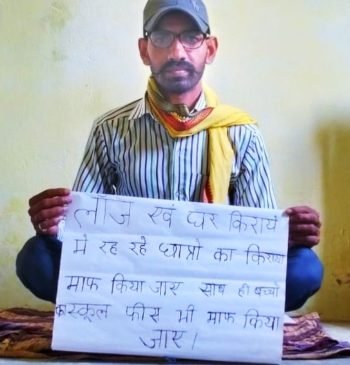 लॉज एवं घर किराये
मे रह रहे छात्रो का किराया
माफ किया जाए साथ ही बच्चो
क स्कूल फीस भी माफ किया
जाए।